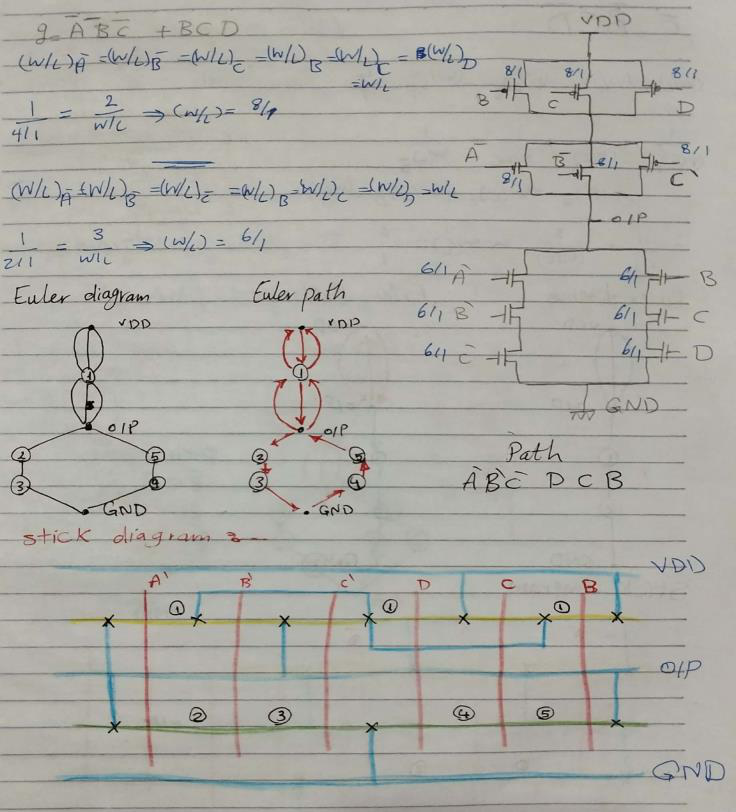 g = A̅ B̅ C̅ + B C D
(W/L)A̅ = (W/L)B̅ = (W/L)C̅ = (W/L)B = (W/L)C = (W/L)D
= W/L
1/(4/1) = 2/(W/L) ⇒ (W/L) = 8/1
(W/L)A̅ = (W/L)B̅ = (W/L)C̅ = (W/L)B = (W/L)C = (W/L)D = W/L
1/(2/1) = 3/(W/L) ⇒ (W/L) = 6/1
VDD
8/1 8/1 8/1
B C D
A̅ B̅ 8/1 8/1
8/1 C̅
O/P
6/1 A̅ 6/1 B
6/1 B̅ 6/1 C
6/1 C̅ 6/1 D
GND
Euler diagram Euler path
VDD VDD
1 1
O/P O/P
2 5 2 5
3 4 3 4
GND GND
Path
A̅ B̅ C̅ D C B
stick diagram :-
VDD
A' B' C' D C B
1 1 1
O/P
2 3 4 5
GND